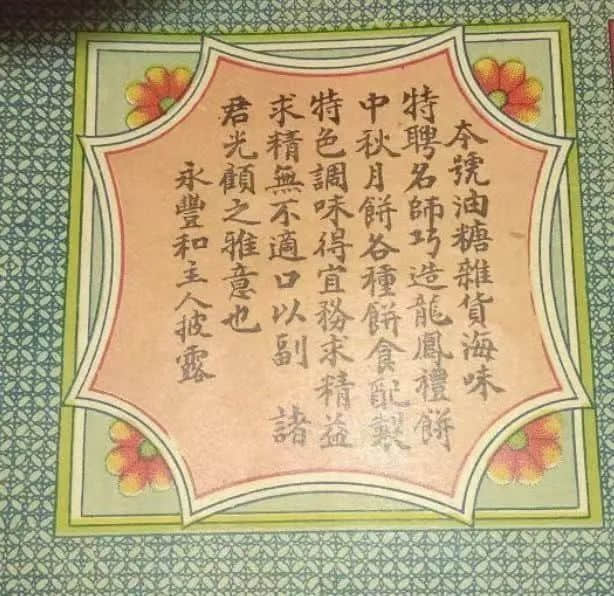 本號油糖雜貨海味
特聘名師巧造龍鳳禮餅
中秋月餅各種餅食配製
特色調味得宜務求精益
求精無不適口以副 諸
君光顧之雅意也
永豐和主人披露